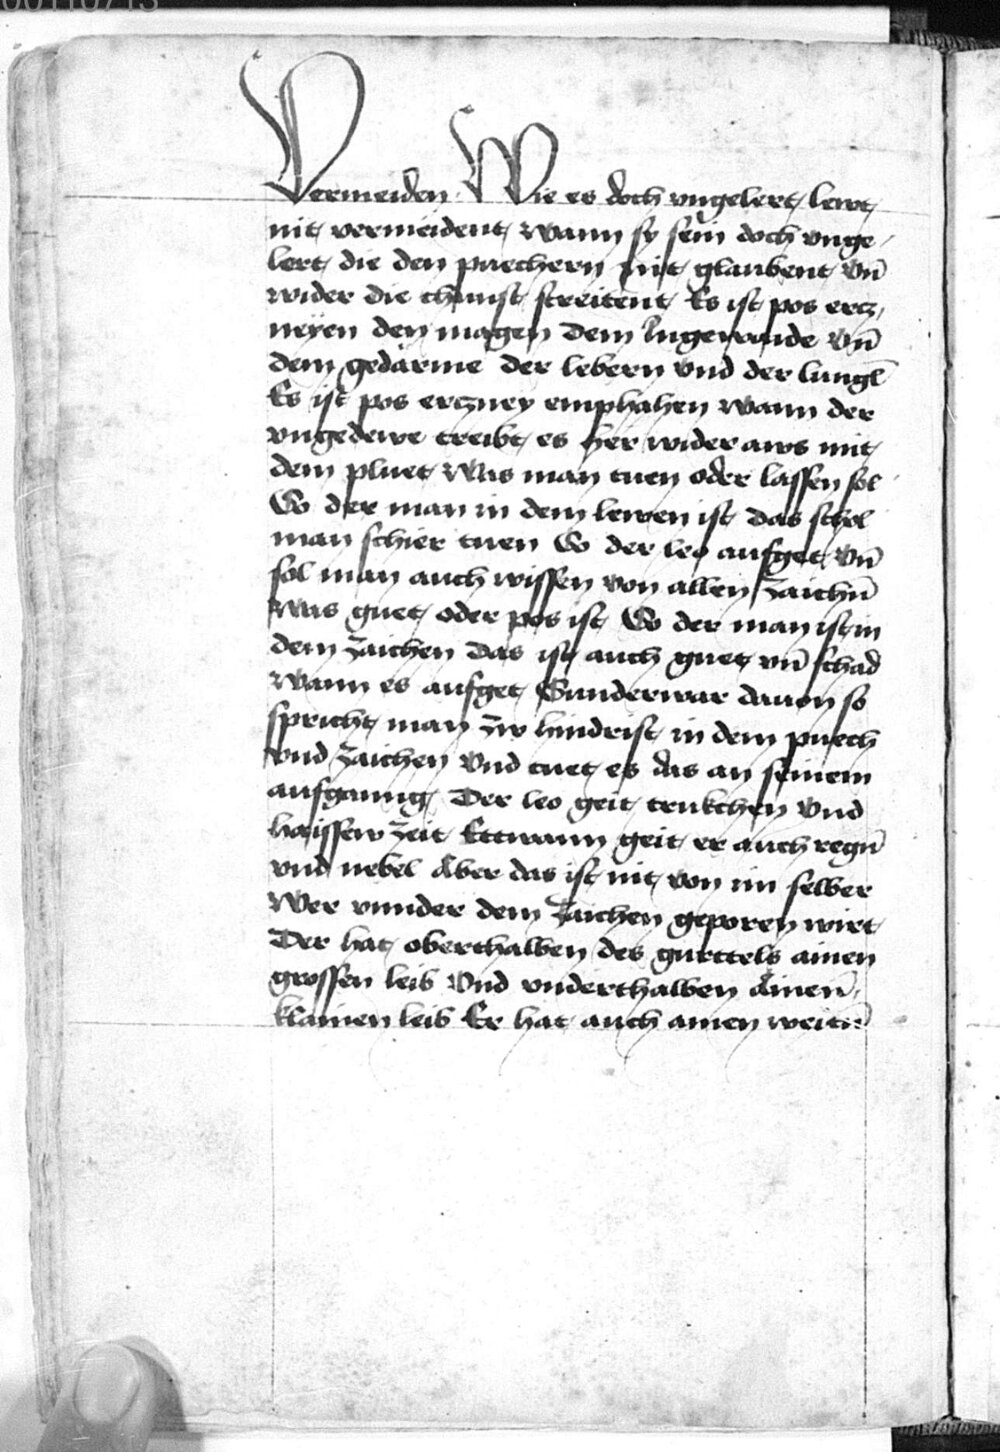 00110713
Vermeiden Wie es doch vngelert lewt
nit vermeident wann sy sein doch vnge
lert die den puechern nit glaubent vn̄
wider die chunst streitent Es ist pos ercz
neyen den magen dem Ingewaide vn̄
dem gedärme der lebern vnd der lungl̄
Es ist pos erczney emphahen wann der
vngedewe treibt es her wider aws mit
dem pluet Was man tuen oder lassen sol
So der man in dem lewen ist das schol
man schier tuen So der leo aufget vn̄
sol man auch wissen von allen zaichn̄
was guet oder pos ist So der man ist in
dem zaichen Das ist auch guet vn̄ schad
wann es aufget Sunderwar dauon so
spricht man zw hindrist in dem puech
vnd zaichen vnd tuet es das an seinem
aufganng Der leo geit trukchen vnd
haissew zeit Ettwann geit er auch regn̄
vnd nebel Aber das ist nit von im selber
Wer vnnder dem zaichen geporen wirt
Der hat oberthalben des gurttels ainen
grossen leib vnd vnderthalben Ainen̄
klainen leib Er hat auch ainen weitn̄